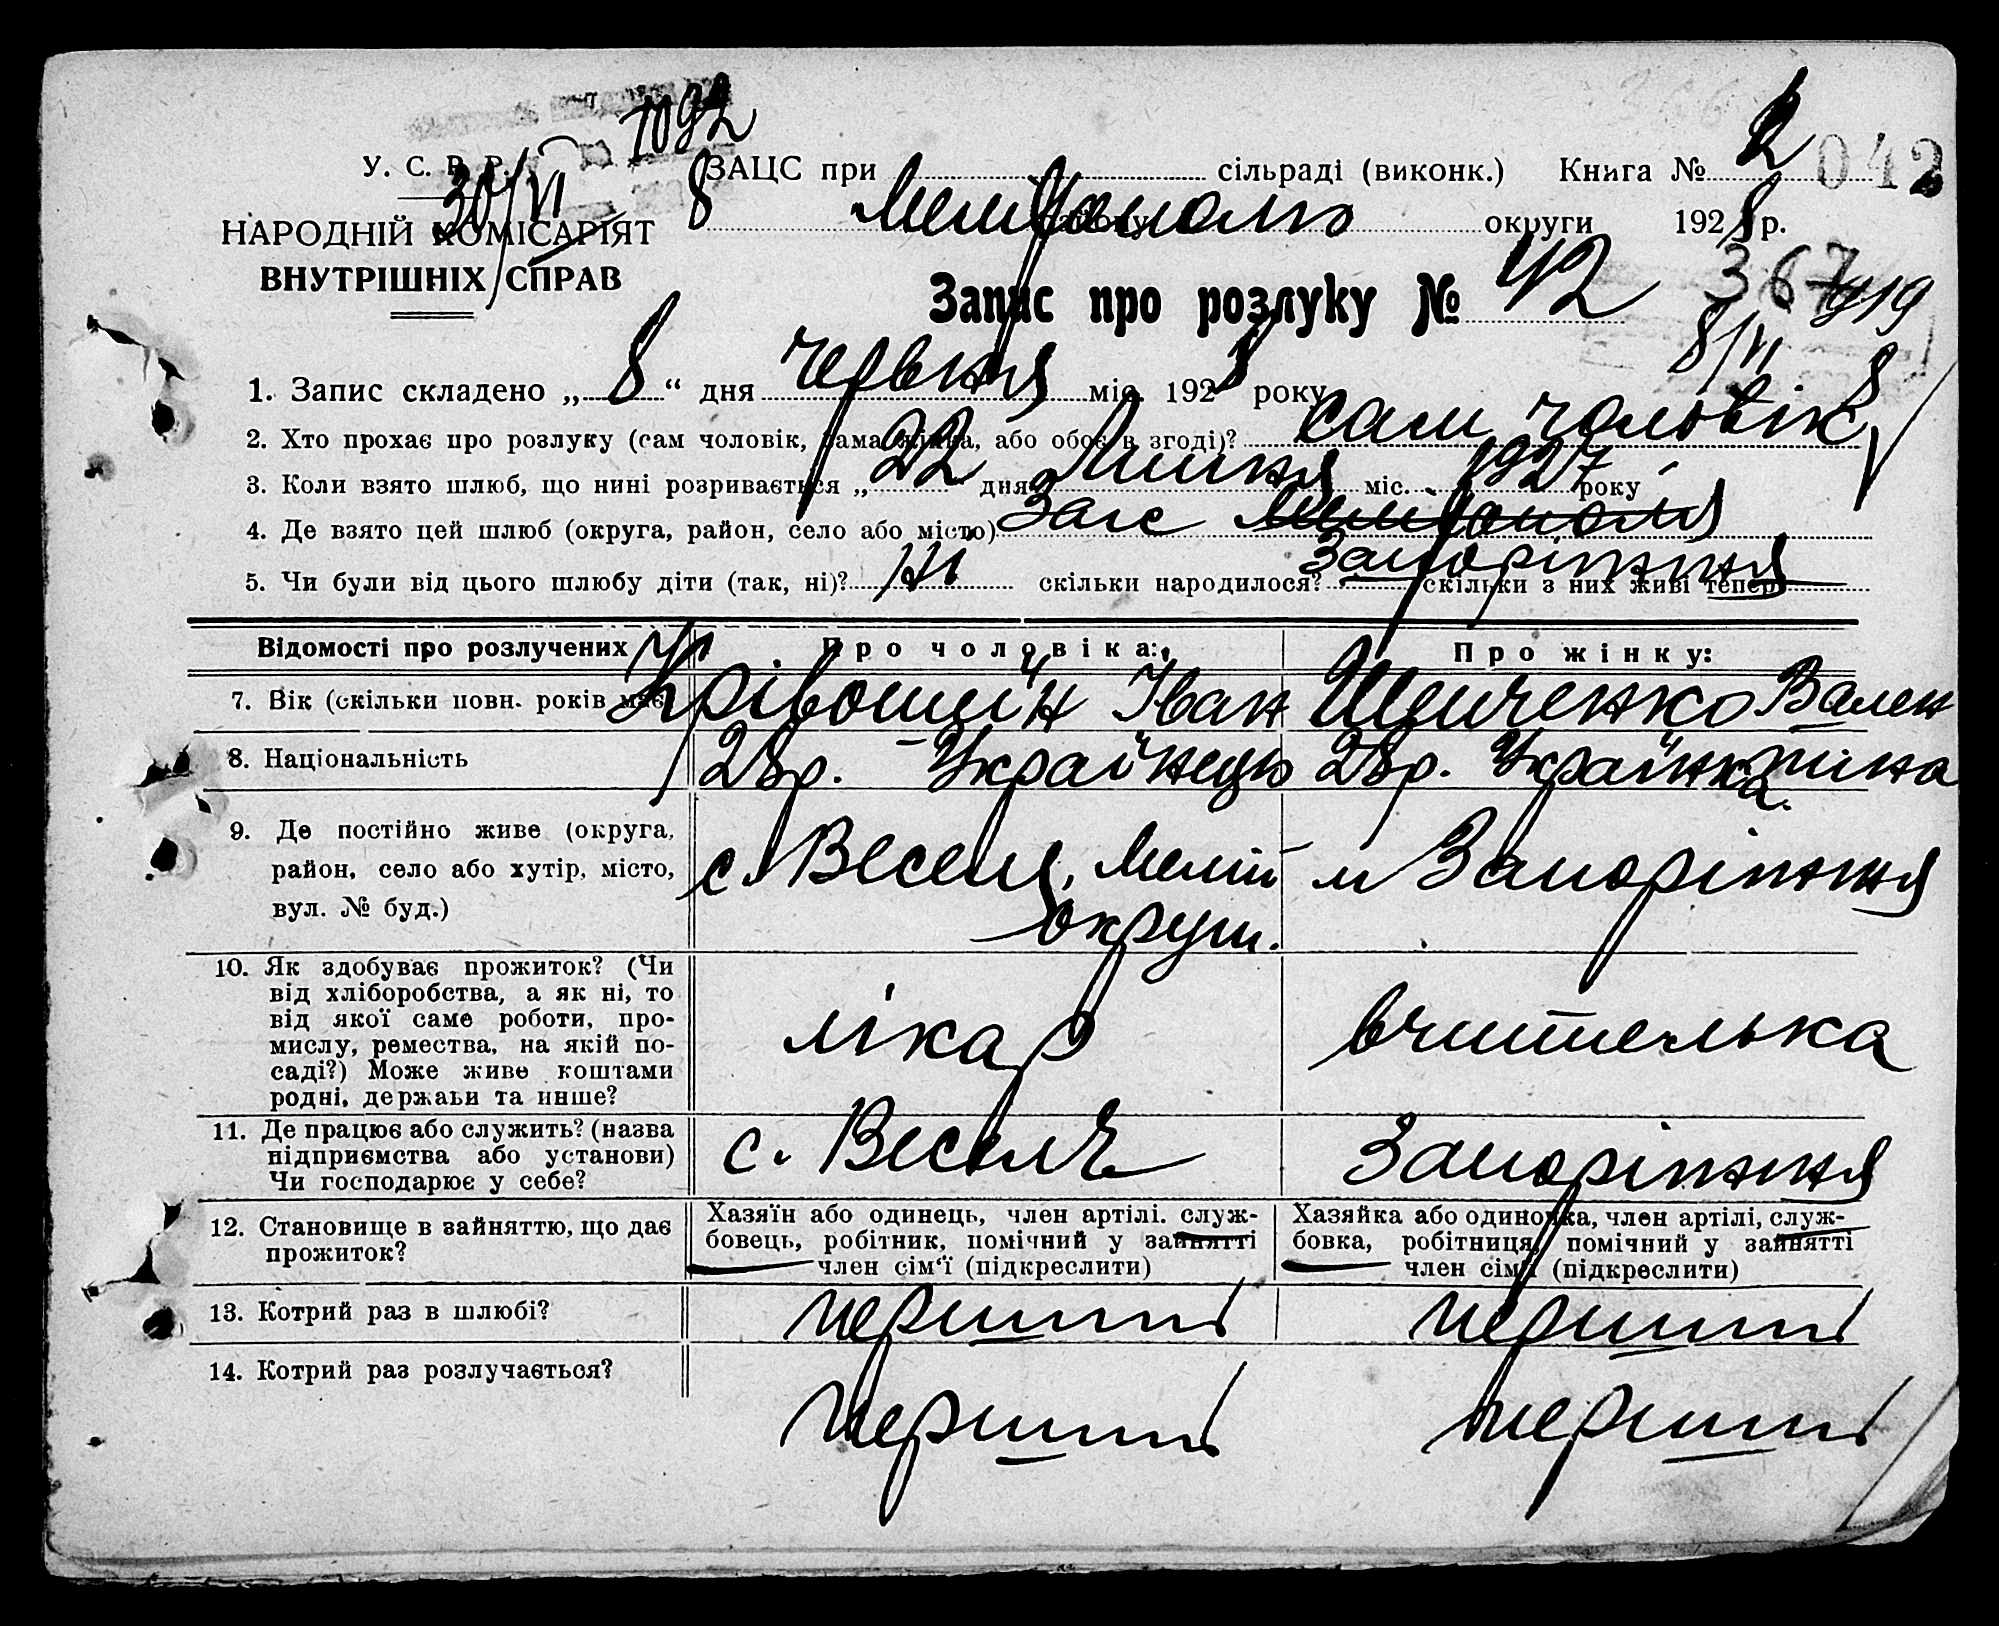 1092
У. С. Р. Р.
30/VI 8
НАРОДНІЙ КОМІСАРІЯТ
ВНУТРІШНІХ СПРАВ
ЗАЦС при сільраді (виконк.) Книга № 2 042
Мелітополю району округи 1928 р.
Запис про розлуку № 42
367 919
8/VI 8
1. Запис складено „ 8 “ дня червня міс. 1928 року
2. Хто прохає про розлуку (сам чоловік, сама жінка, або обоє в згоді)? сам чоловік
3. Коли взято шлюб, що нині розривається „ 22 дня Липня міс. 1927 року
4. Де взято цей шлюб (округа, район, село або місто) Загс Мелітополя
Запоріжжя
5. Чи були від цього шлюбу діти (так, ні)? ні скільки народилося? скільки з них живі тепер
Відомості про розлучених Про чоловіка: Про жінку:
7. Вік (скільки повн. років має) Крівошейн Іван Шевченко Вален
тина
8. Національність 28р. Українець 28р. Українка.
9. Де постійно живе (округа, район, село або хутір, місто, вул. № буд.)
с. Веселе, Меліт округи.
м Запоріжжя
10. Як здобуває прожиток? (Чи
від хліборобства, а як ні, то
від якої саме роботи, про-
мислу, ремества, на якій по-
саді?) Може живе коштами
родні, держави та инше?
лікар вчителька
11. Де працює або служить? (назва
підприємства або установи)
Чи господарює у себе?
с. Веселе Запоріжжя
12. Становище в зайняттю, що дає
прожиток?
Хазяїн або одинець, член артілі, служ-
бовець, робітник, помічний у зайнятті
член сім'ї (підкреслити)
Хазяйка або одиночка, член артілі, служ-
бовка, робітниця, помічний у зайнятті
член сім'ї (підкреслити)
13. Котрий раз в шлюбі? перший перший
14. Котрий раз розлучається?
перший перший